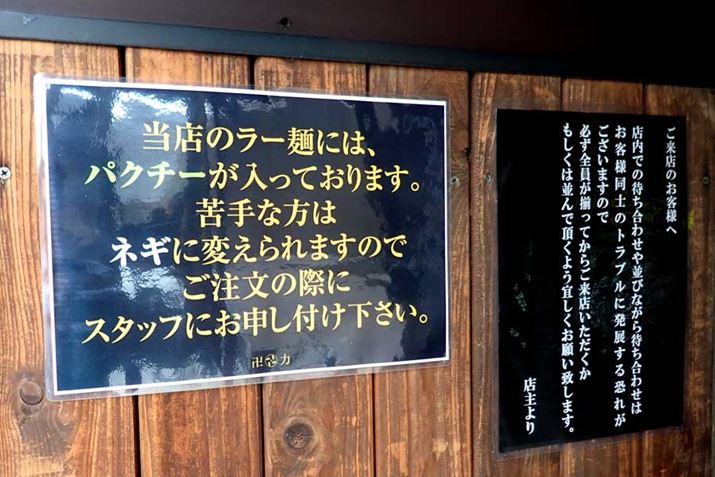 当店のラー麺には、
パクチーが入っております。
苦手な方は
ネギに変えられますので
ご注文の際に
スタッフにお申し付け下さい。
卍卍力
ご来店のお客様へ
店内での待ち合わせや並びながら待ち合わせは
お客様同士のトラブルに発展する恐れが
ございますので
必ず全員が揃ってからご来店いただくか
もしくは並んで頂くよう宜しくお願い致します。
店主より